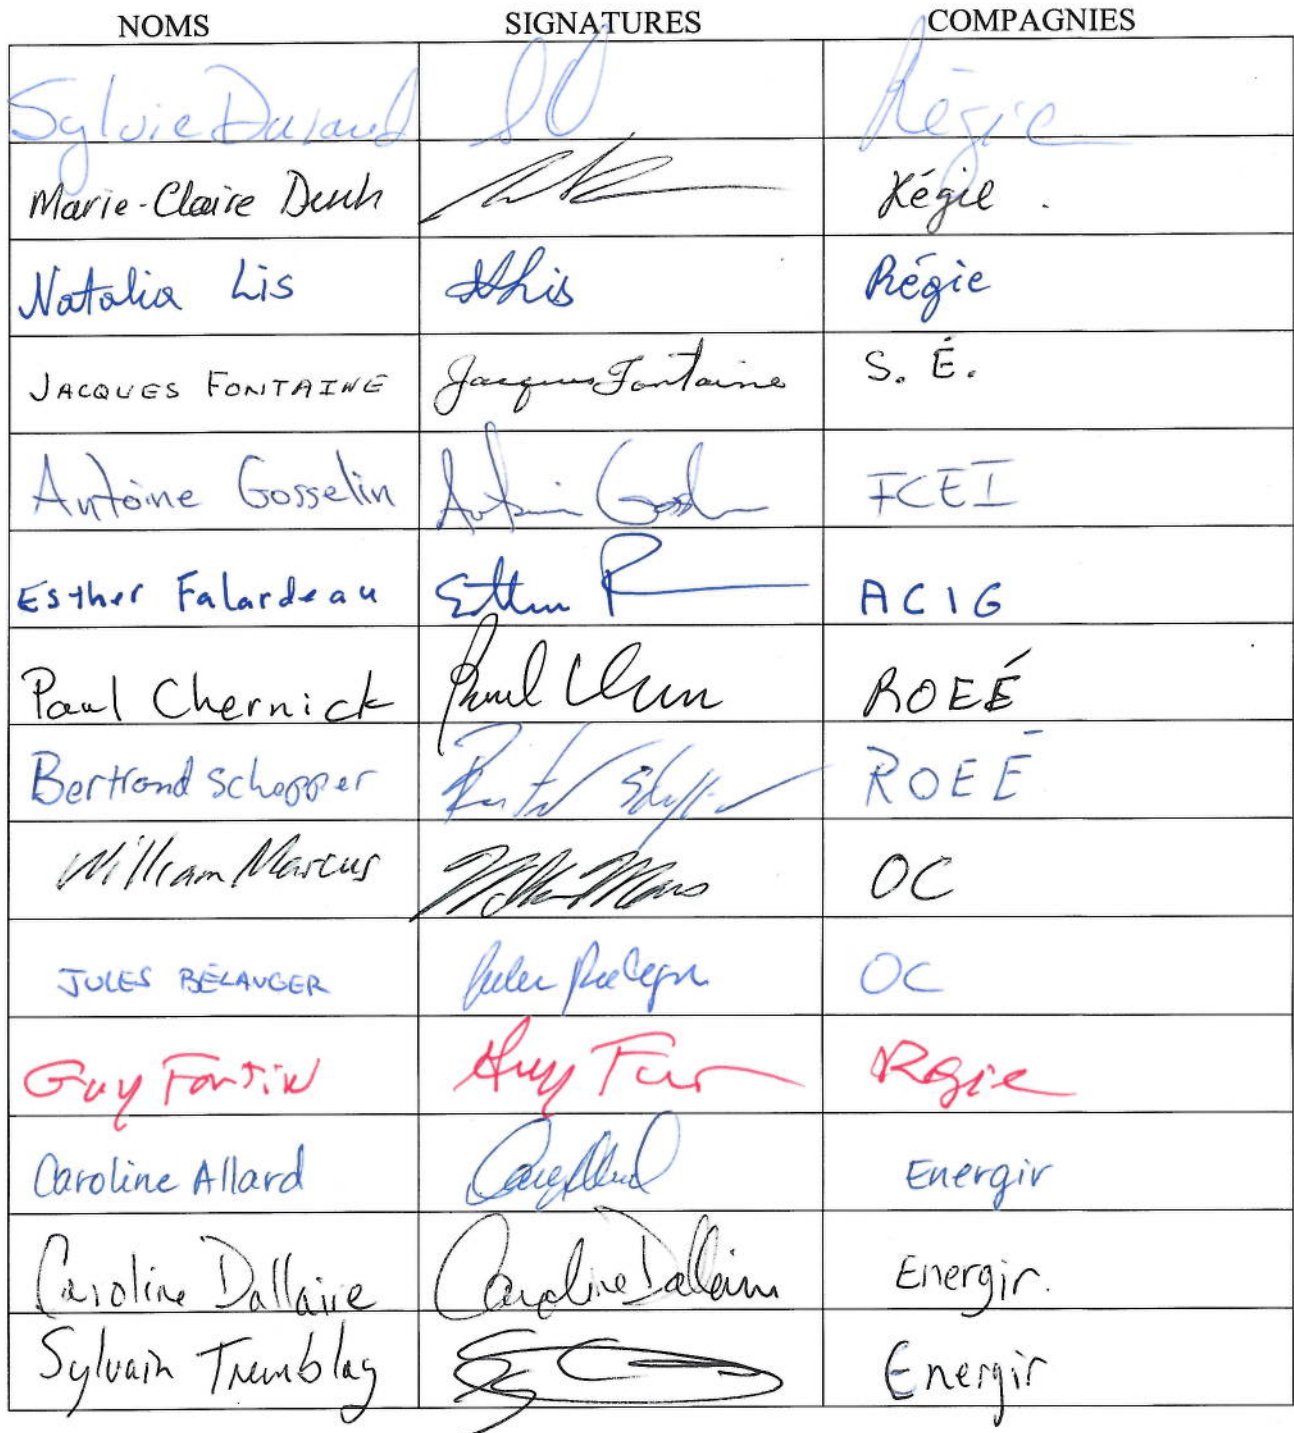 NOMS SIGNATURES COMPAGNIES
Sylvie Durand SD Régie
Marie-Claire Régie.
Natalia Lis NLis Régie
JACQUES FONTAINE Jacques Fontaine S. É.
Antoine Gosselin Antoine FCEI
Esther Falardeau Esther ACIG
Paul Chernick Paul ROEÉ
Bertrand Schepper ROEÉ
William Marcus OC
JULES BÉLANGER OC
Guy Fortin Guy Régie
Caroline Allard Energir
Caroline Dallaire Caroline Dallaire Energir.
Sylvain Tremblay Energir